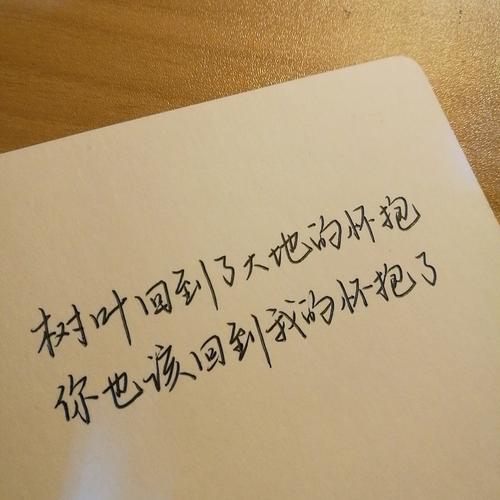 树叶回到了大地的怀抱
你也该回到我的怀抱了